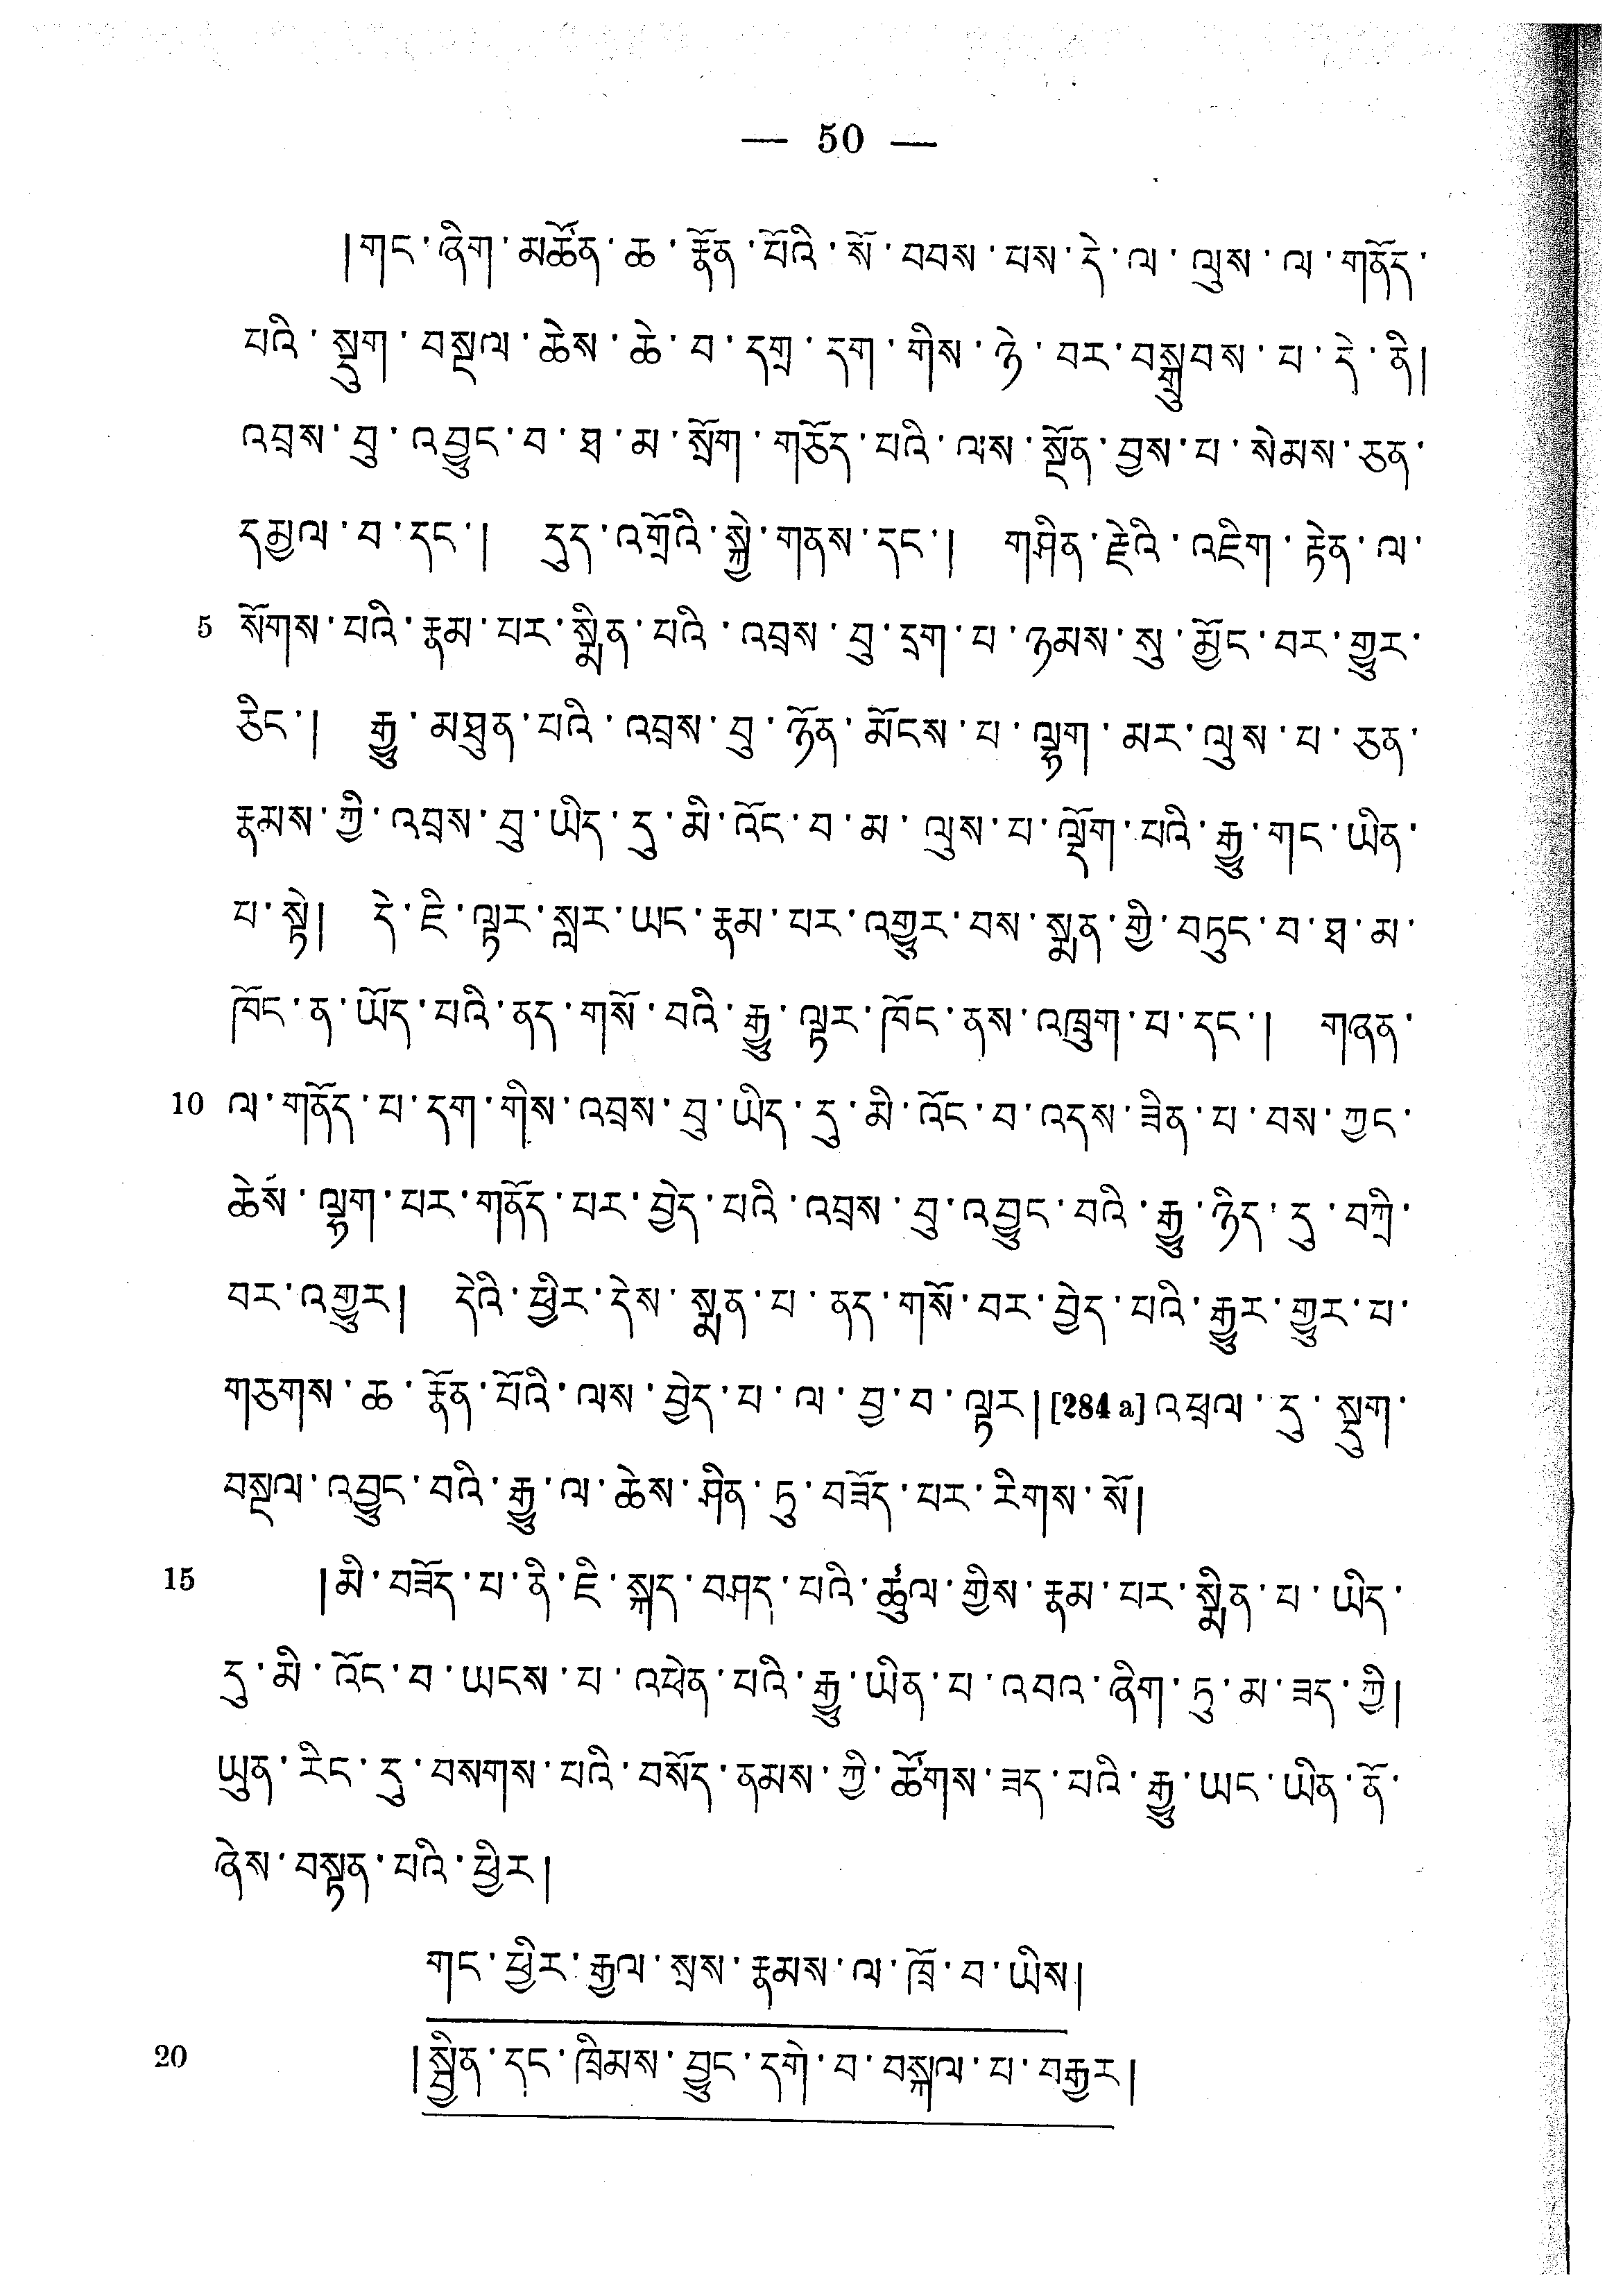 — 50 —
།གང་ཞིག་མཚོན་ཆ་རྣོན་པོའི་སོ་བབས་པས་དེ་ལ་ལུས་ལ་གནོད་
པའི་སྡུག་བསྔལ་ཆེས་ཆེ་བ་དགྲ་དག་གིས་ཉེ་བར་བསྒྲུབས་པ་དེ་ནི།
འབྲས་བུ་འབྱུང་བ་ཐ་མ་སྲོག་གཅོད་པའི་ལས་སྔོན་བྱས་པ་སེམས་ཅན་
དམྱལ་བ་དང་། དུད་འགྲོའི་སྐྱེ་གནས་དང་། གཤིན་རྗེའི་འཇིག་རྟེན་ལ་
5 སོགས་པའི་རྣམ་པར་སྨིན་པའི་འབྲས་བུ་དྲག་པ་ཉམས་སུ་མྱོང་བར་གྱུར་
ཅིང་། རྒྱུ་མཐུན་པའི་འབྲས་བུ་ཉོན་མོངས་པ་ལྷག་མར་ལུས་པ་ཅན་
རྣམས་ཀྱི་འབྲས་བུ་ཡིད་དུ་མི་འོང་བ་མ་ལུས་པ་ལྡོག་པའི་རྒྱུ་གང་ཡིན་
པ་སྟེ། དེ་ཇི་ལྟར་སླར་ཡང་རྣམ་པར་འགྱུར་བས་སྨན་གྱི་བཏུང་བ་ཐ་མ་
ཁོང་ན་ཡོད་པའི་ནད་གསོ་བའི་རྒྱུ་ལྟར་ཁོང་ནས་འཁྲུག་པ་དང་། གཞན་
10 ལ་གནོད་པ་དག་གིས་འབྲས་བུ་ཡིད་དུ་མི་འོང་བ་འདས་ཟིན་པ་བས་ཀྱང་
ཆེས་ལྷག་པར་གནོད་པར་བྱེད་པའི་འབྲས་བུ་འབྱུང་བའི་རྒྱུ་ཉིད་དུ་བཀྲི་
བར་འགྱུར། དེའི་ཕྱིར་དེས་སྨན་པ་ནད་གསོ་བར་བྱེད་པའི་རྒྱུར་གྱུར་པ་
གཅགས་ཆ་རྣོན་པོའི་ལས་བྱེད་པ་ལ་བྱ་བ་ལྟར། [284 a] འཕྲལ་དུ་སྡུག་
བསྔལ་འབྱུང་བའི་རྒྱུ་ལ་ཆེས་ཤིན་ཏུ་བཟོད་པར་རིགས་སོ།
15 །མི་བཟོད་པ་ནི་ཇི་སྐད་བཤད་པའི་ཚུལ་གྱིས་རྣམ་པར་སྨིན་པ་ཡིད་
དུ་མི་འོང་བ་ཡངས་པ་འཕེན་པའི་རྒྱུ་ཡིན་པ་འབའ་ཞིག་ཏུ་མ་ཟད་ཀྱི།
ཡུན་རིང་དུ་བསགས་པའི་བསོད་ནམས་ཀྱི་ཚོགས་ཟད་པའི་རྒྱུ་ཡང་ཡིན་ནོ་
ཞེས་བསྟན་པའི་ཕྱིར།
གང་ཕྱིར་རྒྱལ་སྲས་རྣམས་ལ་ཁྲོ་བ་ཡིས།
20 །སྦྱིན་དང་ཁྲིམས་བྱུང་དགེ་བ་བསྐལ་པ་བརྒྱར།